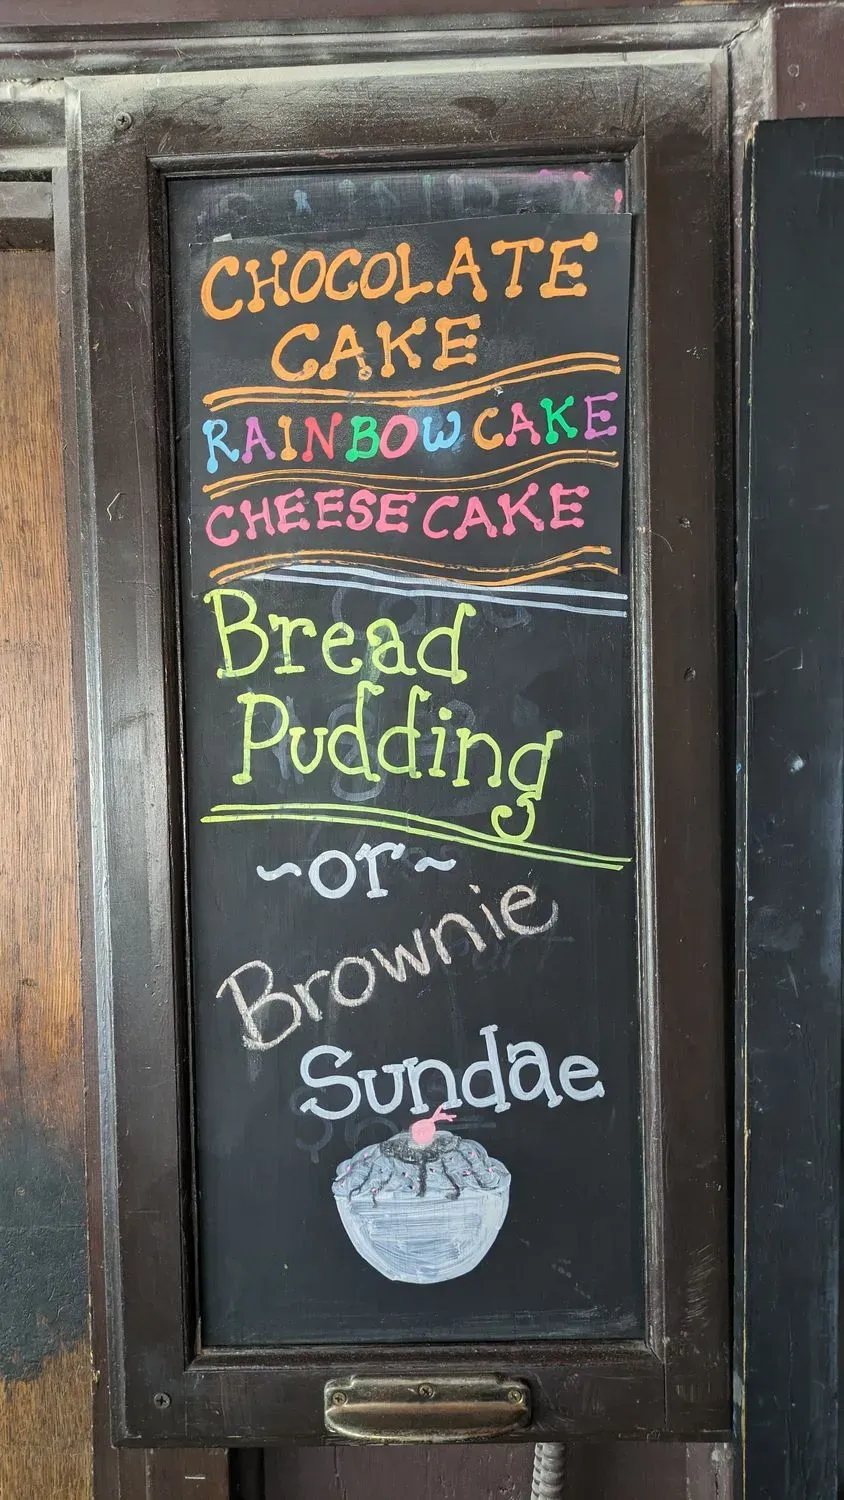 CHOCOLATE
CAKE
RAINBOW CAKE
CHEESE CAKE
Bread
Pudding
~or~
Brownie
Sundae